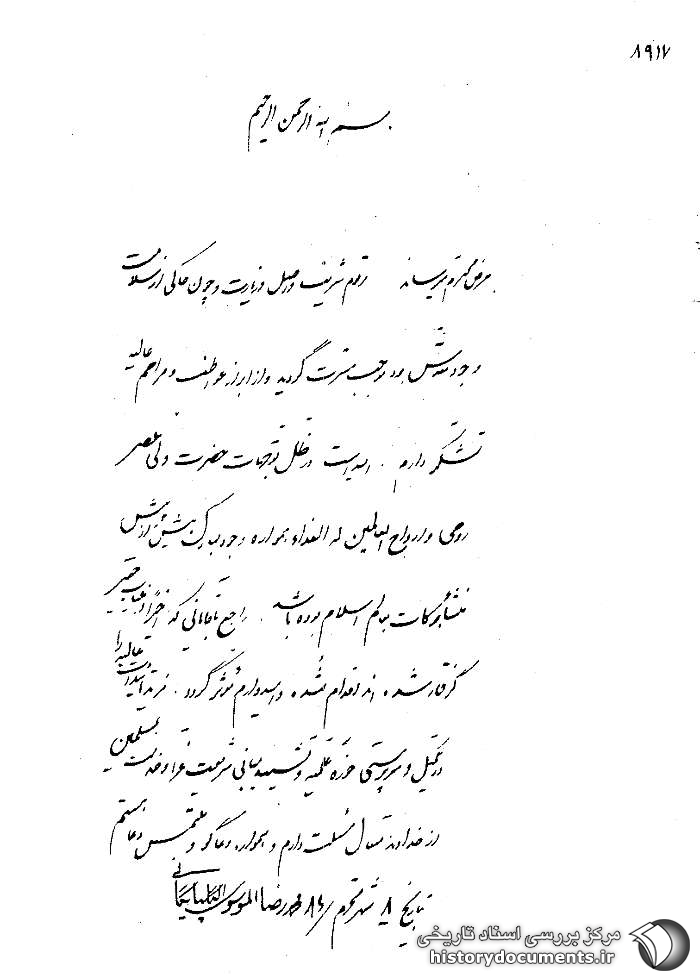 ۸۹۱۷
بسم الله الرحمن الرحیم
بعرض محترم میرساند رقوم شریف واصل و زیارت و چون حاکی از سلامت
وجود مقدس بود موجب مسرت گردید و از ابراز عواطف و مراحم عالیه
تشکر دارم . امید است در ظل توجهات حضرت ولی عصر
روحی و ارواح العالمین له الفداء همواره وجود مبارک بیش از پیش
منشأ برکات بعالم اسلام بوده باشد . راجع بآقایانی که اخیراً
گرفتار شده اند اقدام شده و امیدوارم مؤثر گردد . مزید تأییدات عالیه را
در تکمیل و سرپرستی حوزه علمیه و تشیید مبانی شریعت غرا و خدمت بمسلمین
از خداوند متعال مسئلت دارم و همواره دعاگو و ملتمس دعا هستم
بتاریخ ۸ شهر محرم ۸۴ محمد رضا الموسوی الگلپایگانی
مرکز بررسی اسناد تاریخی
historydocuments.ir